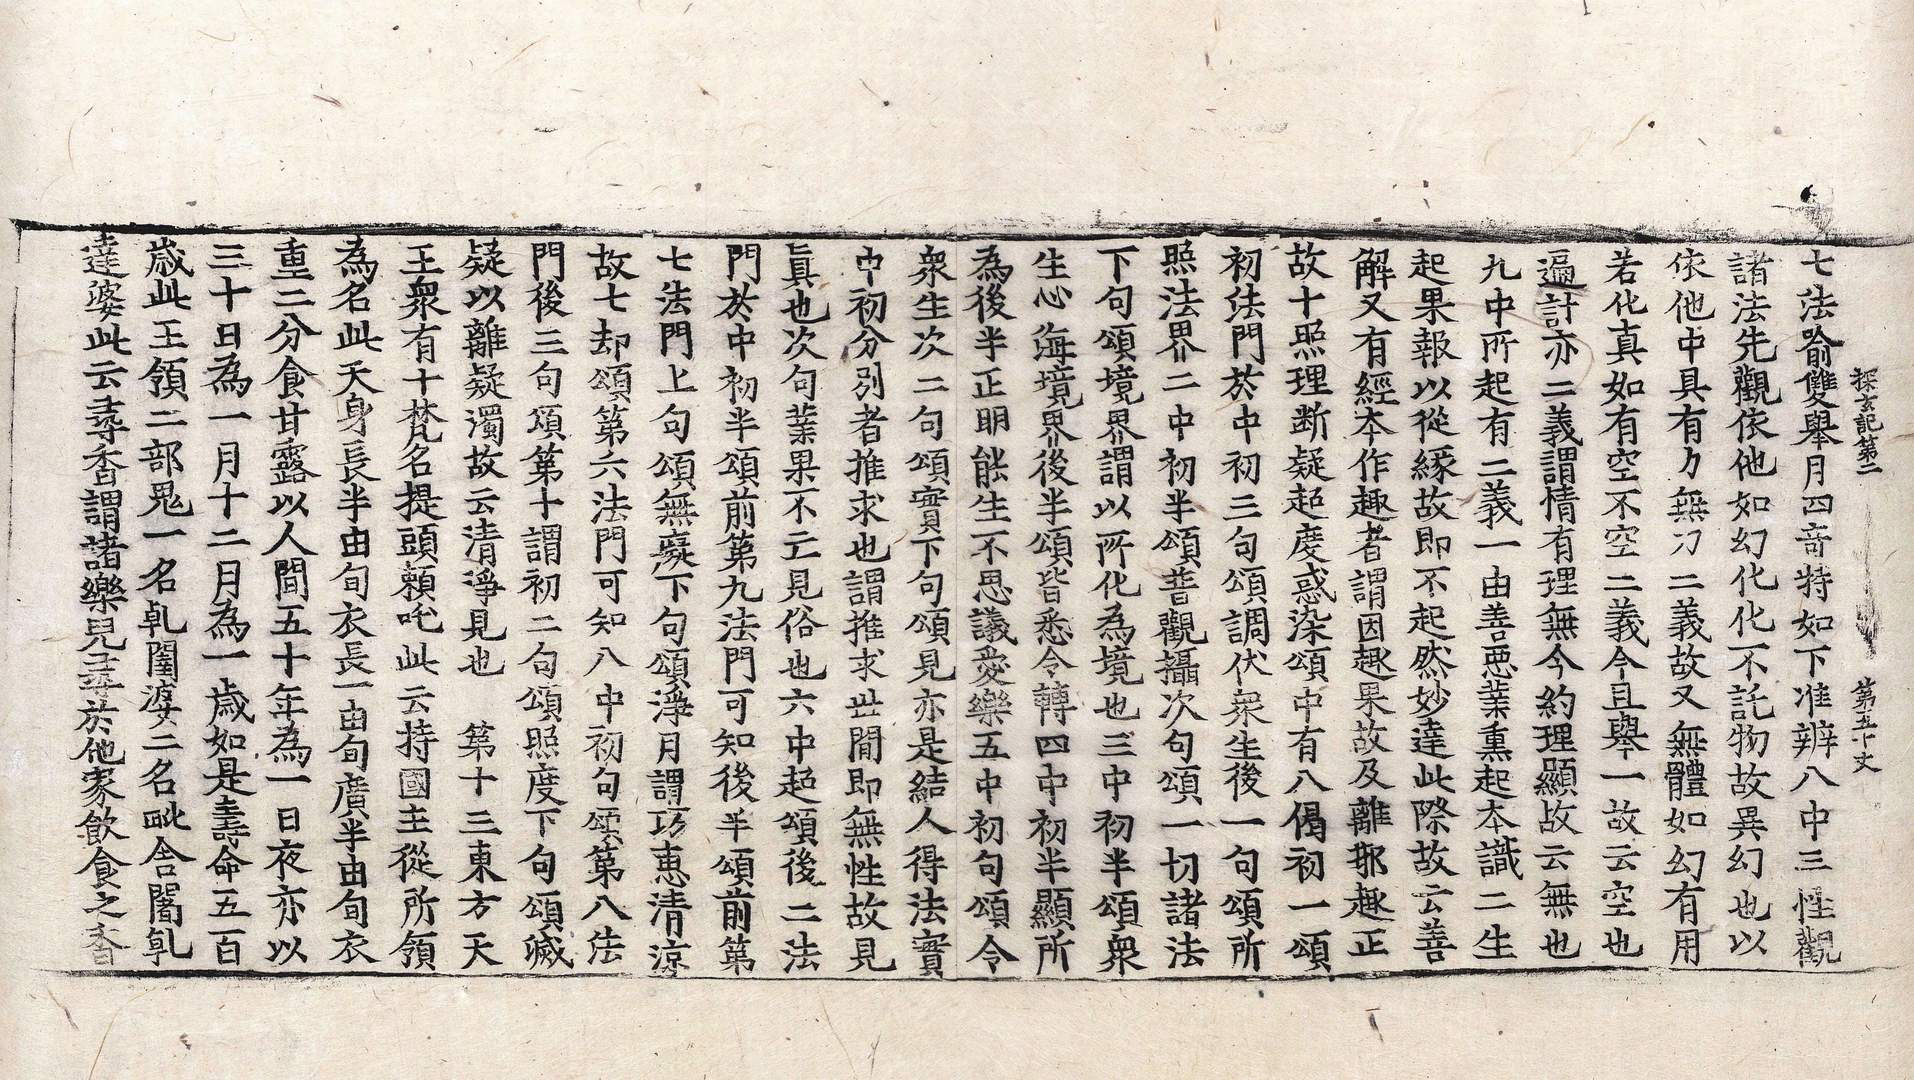 探玄記第二　第五十丈
七法喻雙舉月四竒特如下准辨八中三性觀
諸法先觀依他如幻化化不託物故異幻也以
依他中具有力無力二義故又無體如幻有用
若化真如有空不空二義今且舉一故云空也
遍計亦二義謂情有理無今約理顯故云無也
九中所起有二義一由善惡業熏起本識二生
起果報以從緣故即不起然妙達此際故云善
解又有經本作趣者謂因趣果故及離邪趣正
故十照理断疑超度惑染頌中有八偈初一頌
初法門於中初三句頌調伏衆生後一句頌所
照法界二中初半頌普觀攝次句頌一切諸法
下句頌境界謂以所化為境也三中初半頌衆
生心海境界後半頌皆悉令轉四中初半顯所
為後半正明能生不思議愛樂五中初句頌令
衆生次二句頌實下句頌見亦是結人得法實
中初分別者推求也謂推求世間即無性故見
真也次句業果不亡見俗也六中超頌後二法
門於中初半頌前第九法門可知後半頌前第
七法門上句頌無礙下句頌淨月謂功惠清涼
故七却頌第六法門可知八中初句頌第八法
門後三句頌第十謂初二句頌照度下句頌滅
疑以離疑濁故云清淨見也　第十三東方天
王衆有十梵名提頭賴吒此云持國主從所領
為名此天身長半由旬衣長一由旬廣半由旬衣
重二分食甘露以人間五十年為一日夜亦以
三十日為一月十二月為一歲如是壽命五百
歲此王領二部鬼一名乹闥婆二名毗舍闍乹
達婆此云尋香謂諸樂兒尋於他家飲食之香